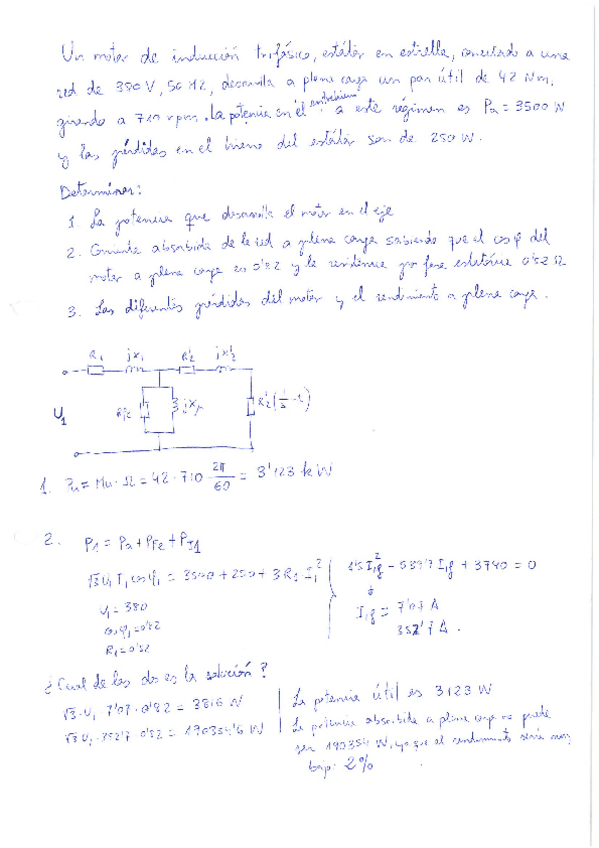 Un motor de inducción trifásico, estátor en estrella, conectado a una
red de 380 V, 50 Hz, desarrolla a plena carga un par útil de 42 Nm,
girando a 710 rpm. La potencia en el entrehierro a este régimen es Pa = 3500 W
y las pérdidas en el hierro del estátor son de 250 W.
Determinar:
1. La potencia que desarrolla el motor en el eje
2. Corriente absorbida de la red a plena carga sabiendo que el cosφ del
motor a plena carga es 0'82 y la resistencia por fase estatórica 0'52 Ω
3. Las diferentes pérdidas del motor y el rendimiento a plena carga.
R1 jx1 R'2 jx'2
U1 RFe jXμ R'2(1/s - 1)
1. Pu = Mu·Ω = 42·710·2π/60 = 3'123 kW
2. P1 = Pa + PFe + PJ1
√3 U1 I1 cosφ1 = 3500 + 250 + 3 R1 I1²
U1 = 380
cosφ1 = 0'82
I1f =
¿Cual de las dos es la solución?
√3·U1·7'07·0'82 = 3816 W
La potencia útil es 3123 W
La potencia absorbida a plena carga no puede
ser 190354 W, ya que el rendimiento sería muy
bajo: 2%